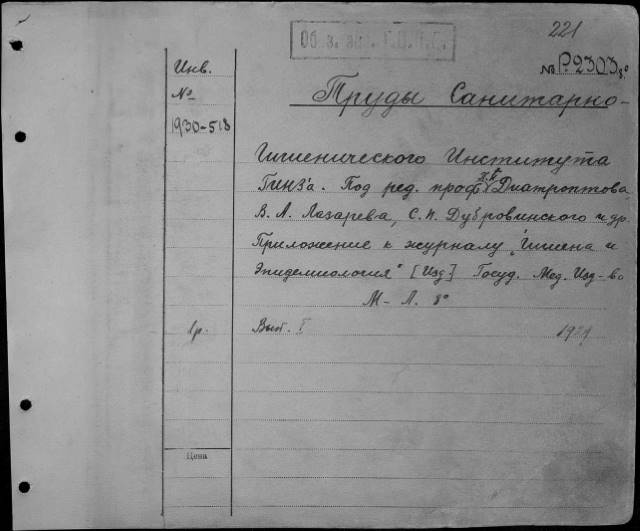 221
Обяз. экз. Г.П.П.
№ Р.2303 8°
Инв.
№
1930-518
Труды Санитарно-
Гигиенического Института
Гинз'а. Под ред. проф. П. Диатроптова,
В. А. Лазарева, С. П. Дубровинского и др.
Приложение к журналу „Гигиена и
Эпидемиология" [Изд] Госуд. Мед. Изд-во
М-Л. 8°
1р. Вып. I 1929
Цена